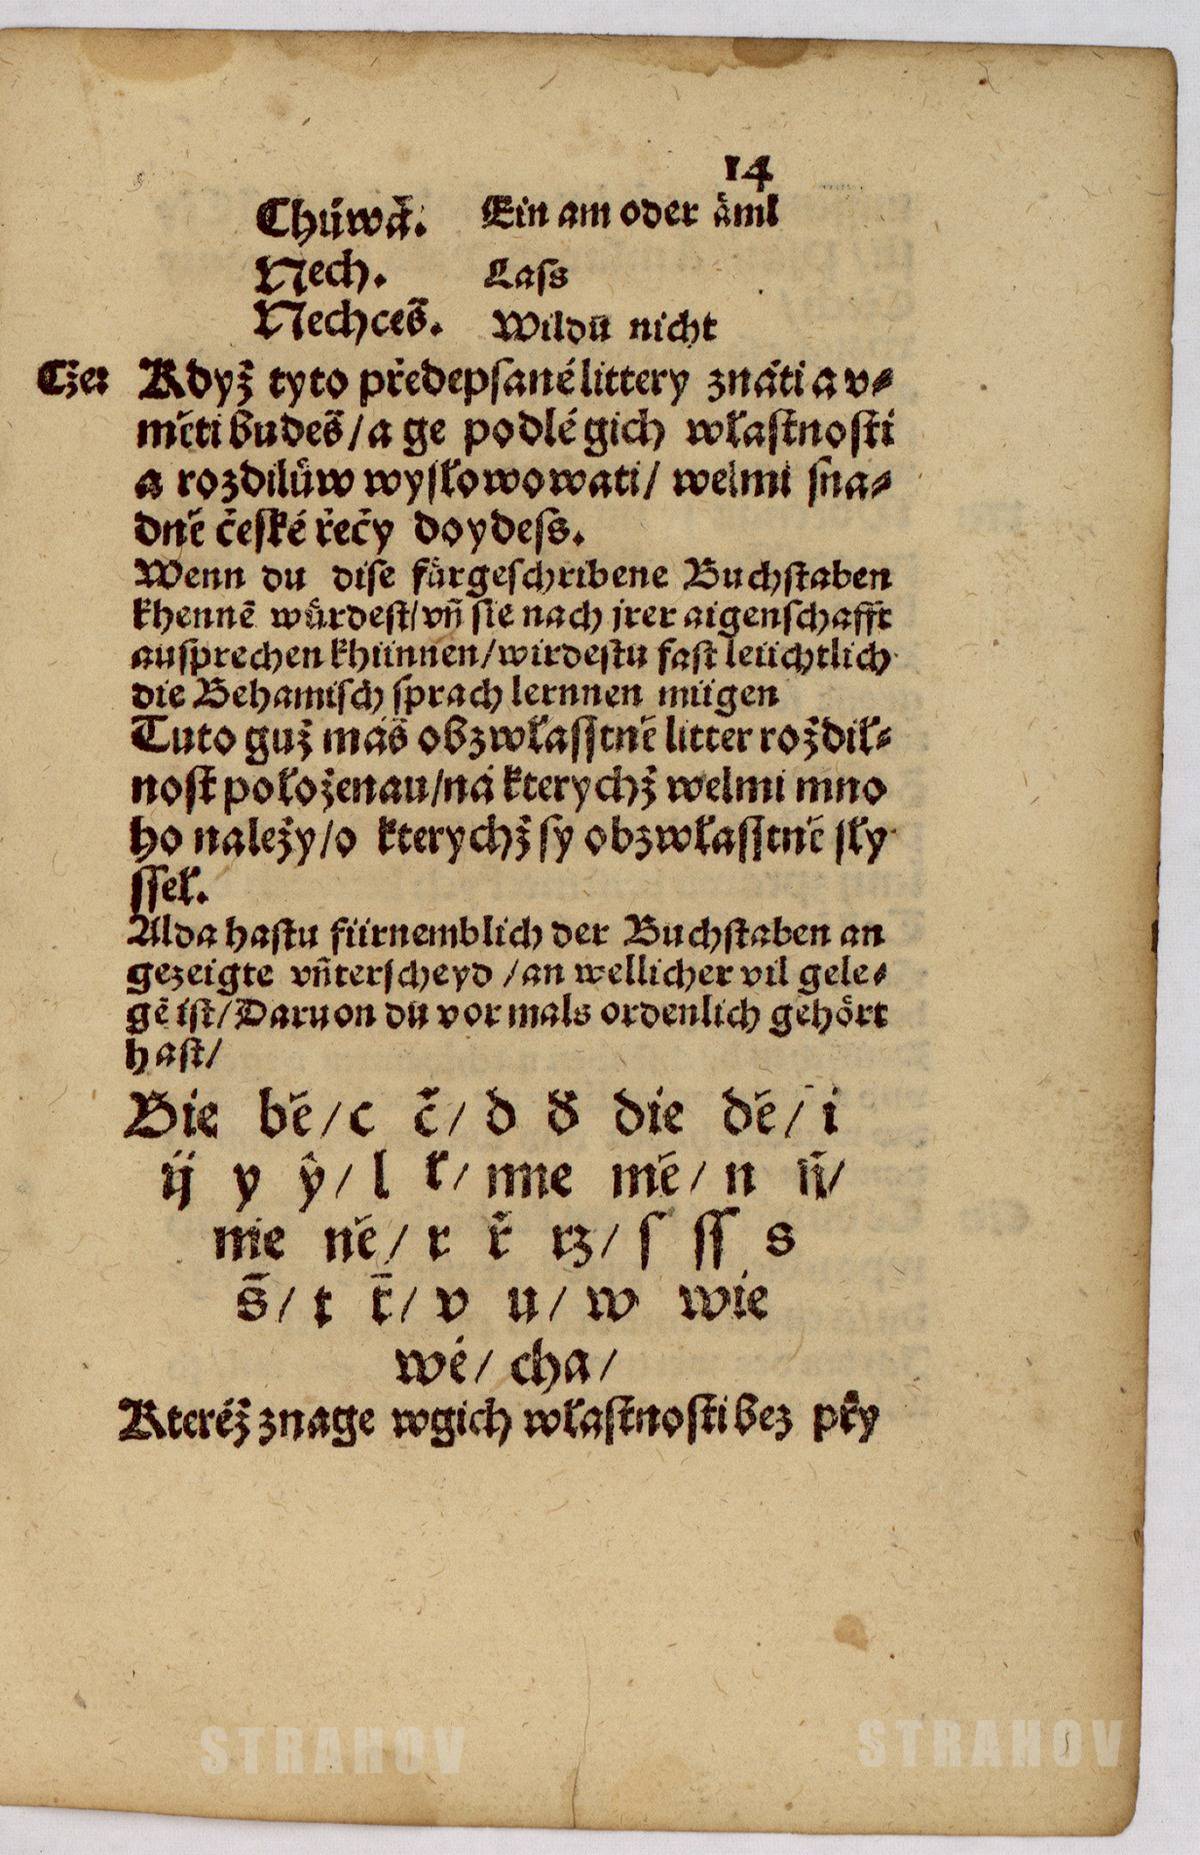 14
Chúwǎ. Ein am oder åml
Nech. Lass
Nechceš. Wildū nicht
Cže: Když tyto předepsané littery znáti a v⸗
měti budeš/a ge podlé gich włastnosti
a rozdilůw wysłowowati/ welmi sna⸗
dně české řečy doydess.
Wenn du dise fårgeschribene Buchstaben
khennē wůrdest/vn̄ sie nach jrer aigenschafft
ausprechen khünnen/wirdestu fast leüchtlich
die Behamisch sprach lernnen mügen
Tuto guž máš obzwłasstně litter roždił⸗
nost położenau/ná kterychž welmi mno
ho należy/o kterychž sy obzwłasstně sły
sseł.
Alda hastu fürnemblich der Buchstaben an
gezeigte vn̄terscheyd /an wellicher vil gele⸗
gē ist/Daruon dū vor mals ordenlich gehört
hast/
Bie bě/c č/d ď die dě/i
ij y ŷ/l ł/mne mě/n ň/
nie ně/r ř rz/ſ ſſ s
s̄/t t̄/v u/w wie
wé/cha/
Kteréž znage wgich włastnosti bez přy
STRAHOV STRAHOV